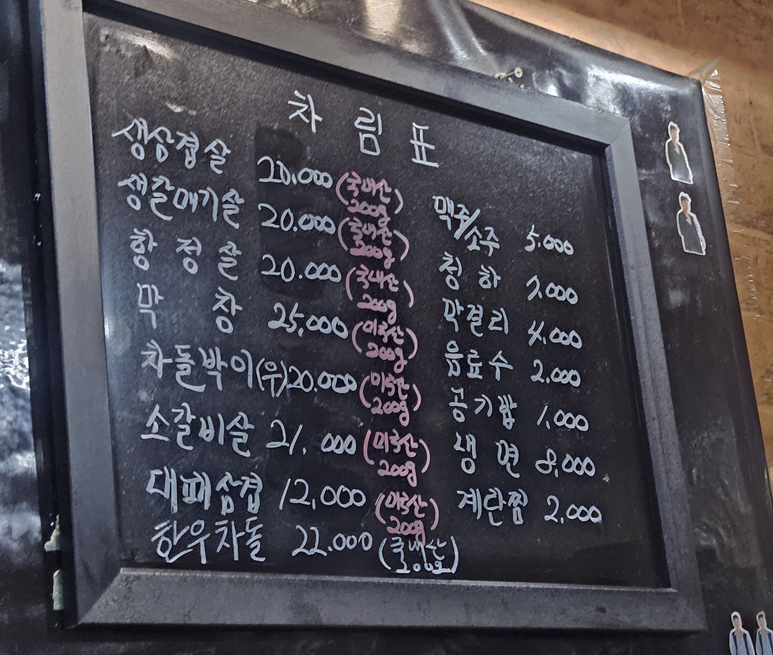 차림표
생삼겹살 20,000 (국내산 200g)
생갈매기살 20.000 (국내산 200g)
항정살 20.000 (국내산 200g)
막창 25,000 (미국산 200g)
차돌박이(우) 20.000 (미국산 200g)
소갈비살 21.000 (미국산 200g)
대패삼겹 12,000 (미국산 200g)
한우차돌 22.000
맥주/소주 5.000
청하
막걸리 4,000
음료수 2,000
공기밥 1,000
냉면 8,000
계란찜 2,000